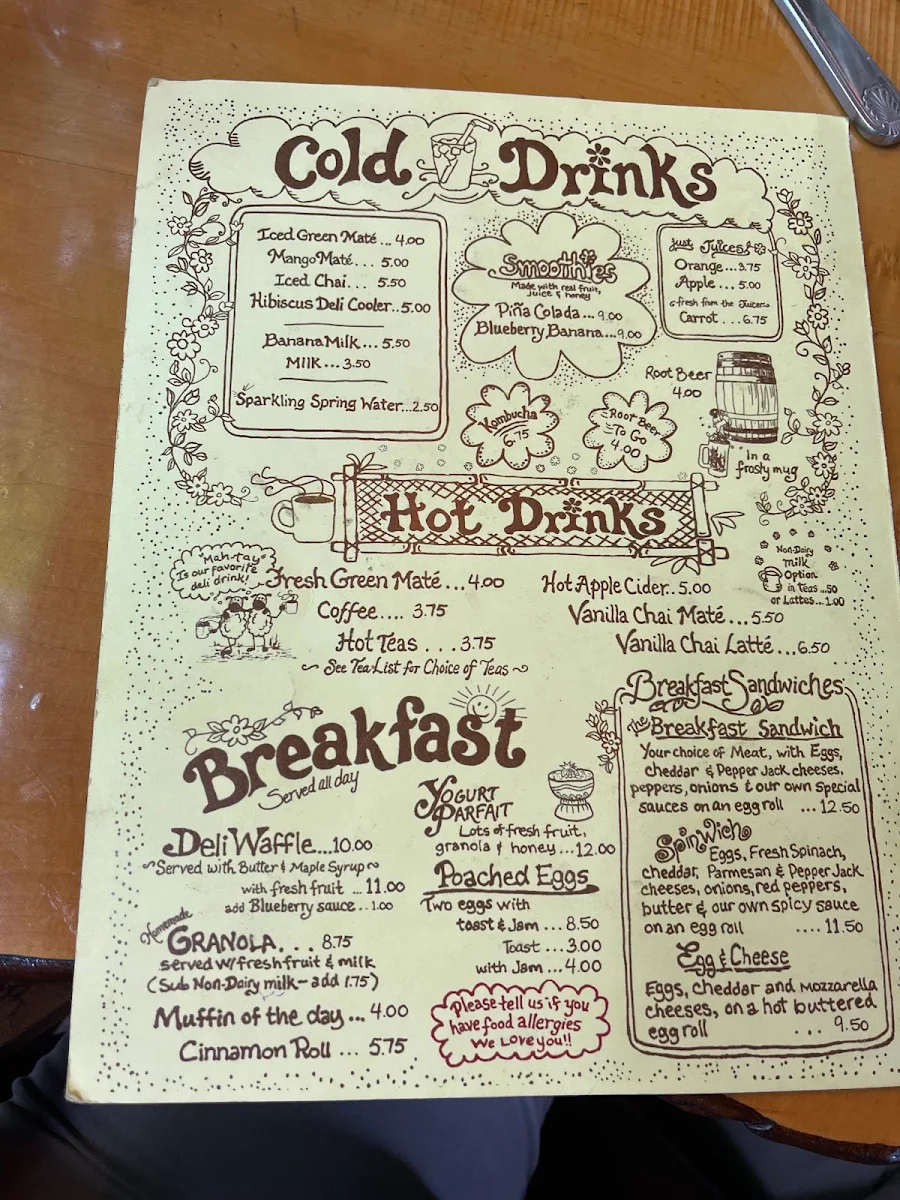 Cold Drinks
Iced Green Maté ... 4.00
Mango Maté.... 5.00
Iced Chai.... 5.50
Hibiscus Deli Cooler..5.00
Banana Milk... 5.50
Milk... 3.50
Sparkling Spring Water...2.50
Smoothies
Made with real fruit,
juice & honey
Piña Colada... 9.00
Blueberry Banana...9.00
Just Juices!
Orange...3.75
Apple... 5.00
fresh from the Juicer
Carrot ... 6.75
Kombucha
6.75
Root Beer
To Go
4.00
Root Beer
4.00
In a
frosty mug
Hot Drinks
"Mah-Tay"
Is our favorite
deli drink!
Fresh Green Maté... 4.00
Coffee.... 3.75
Hot Teas ... 3.75
~ See Tea List for Choice of Teas ~
Hot Apple Cider.. 5.00
Vanilla Chai Maté... 5.50
Vanilla Chai Latté...6.50
Non-Dairy
Milk
Option
in Teas ..50
or Lattes...1.00
Breakfast
Served all day
Deli Waffle...10.00
~Served with Butter & Maple Syrup~
with fresh fruit ... 11.00
add Blueberry sauce .. 1.00
Homemade
GRANOLA... 8.75
served w/ fresh fruit & milk
(Sub Non-Dairy milk - add 1.75)
Muffin of the day ... 4.00
Cinnamon Roll ... 5.75
YOGURT
PARFAIT
Lots of fresh fruit,
granola & honey...12.00
Poached Eggs
Two eggs with
toast & Jam ... 8.50
Toast ... 3.00
with Jam ... 4.00
Please tell us if you
have food allergies
We Love you!!
Breakfast Sandwiches
The Breakfast Sandwich
Your choice of Meat, with Eggs,
cheddar & Pepper Jack cheeses,
peppers, onions & our own special
sauces on an egg roll ... 12.50
Spinwich
Eggs, Fresh Spinach,
cheddar, Parmesan & Pepper Jack
cheeses, onions, red peppers,
butter & our own spicy sauce
on an egg roll .... 11.50
Egg & Cheese
Eggs, cheddar and Mozzarella
cheeses, on a hot buttered
egg roll ... 9.50